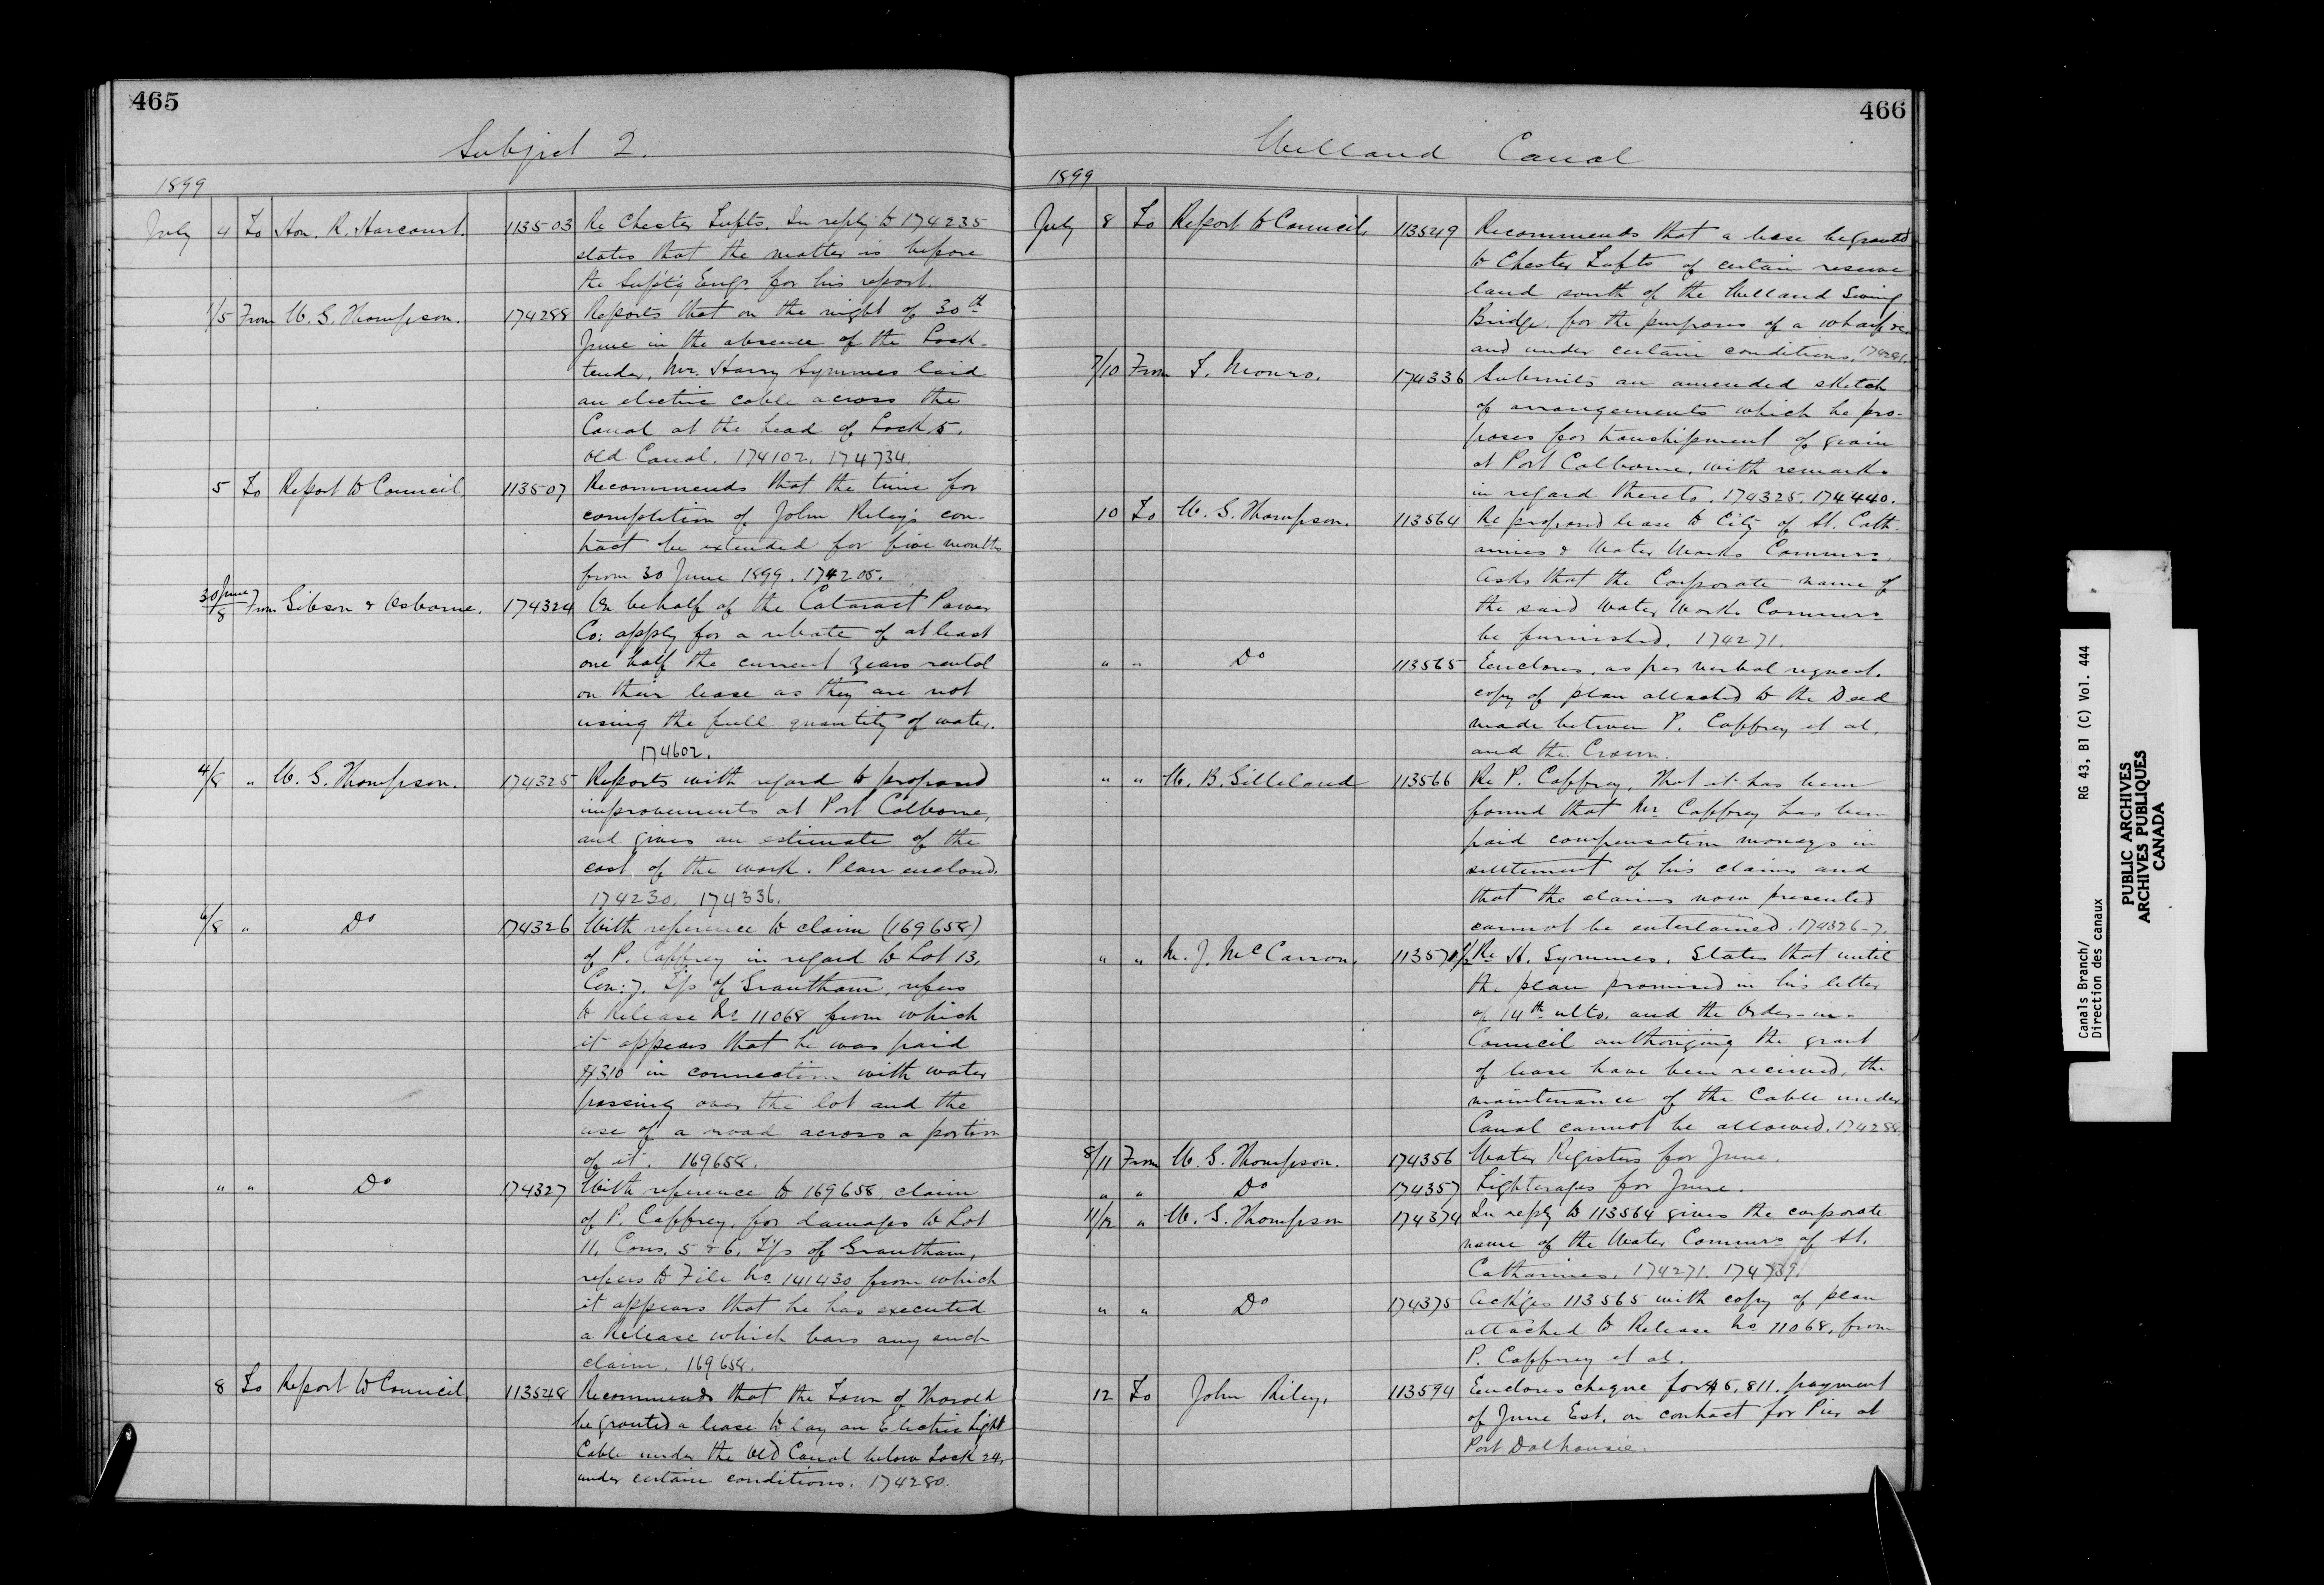 465
Subject 2.
1899
July 4 To Hon. R. Harcourt. 113503 Re Chester Lufts. In reply to 174235
states that the matter is before
the Supt'g Engr for his report.
1/5 From W. G. Thompson. 174288 Reports that on the night of 30th
June in the absence of the Lock-
tender, Mr. Harry Symmes laid
an electric cable across the
Canal at the head of Lock 5.
Old Canal. 174102. 174734.
5 To Report to Council, 113507 Recommends that the time for
completion of John Riley's con-
tract be extended for five months
from 30 June 1899. 174205.
30 June/8 From Gibson & Osborne. 174324 On behalf of the Cataract Power
Co: apply for a rebate of at least
one half the current years rental
on their lease as they are not
using the full quantity of water.
174602.
4/8 " W. G. Thompson. 174325 Reports with regard to proposed
improvements at Port Colborne,
and gives an estimate of the
cost of the work. Plan enclosed.
174230. 174336.
6/8 " Do 174326 With reference to claim (169658)
of P. Caffrey in regard to Lot 13,
Con: 7. T/p of Grantham, refers
to Release No 11068 from which
it appears that he was paid
$310 in connection with water
passing over the lot and the
use of a road across a portion
of it. 169658.
" " Do 174327 With reference to 169658 claim
of P. Caffrey, for damages to Lot
11, Cons. 5 & 6, T/p of Grantham,
refers to File No 141430 from which
it appears that he has executed
a Release which bars any such
claim. 169658.
8 To Report to Council, 113548 Recommends that the Town of Thorold
be granted a lease to lay an Electric Light
Cable under the Old Canal below Lock 24,
under certain conditions. 174280.
466
Welland Canal
1899
July 8 To Report to Council, 113549 Recommends that a lease be granted
to Chester Lufts of certain reserve
land south of the Welland Swing
Bridge, for the purposes of a wharf &c.
and under certain conditions. 174281.
7/10 From T. Monro. 174336 Submits an amended sketch
of arrangements which he pro-
poses for transhipment of grain
at Port Colborne, with remarks
in regard thereto. 174325. 174440.
10 To W. G. Thompson. 113564 Re proposed lease to City of St. Cath-
arines & Water Works Commrs.
Asks that the Corporate name of
the said Water Works Commrs
be furnished. 174271.
" " Do 113565 Encloses, as per verbal request.
copy of plan attached to the Deed
made between P. Caffrey et al,
and the Crown.
" " W. B. Gilleland 113566 Re P. Caffrey, that it has been
found that Mr Caffrey has been
paid compensation moneys in
settlement of his claims and
that the claims now presented
cannot be entertained. 174326-7.
" " M. J. McCarron, 113570 1/2 Re H. Symmes. States that until
the plan promised in his letter
of 14th ulto. and the Order-in-
Council authorizing the grant
of lease have been received, the
maintenance of the Cable under
Canal cannot be allowed. 174288.
8/11 From W. G. Thompson. 174356 Water Registers for June.
" " Do 174357 Lighterages for June.
11/12 " W. G. Thompson 174374 In reply to 113564 gives the corporate
name of the Water Commrs of St.
Catharines. 174271. 174739.
" " Do 174375 Ack'ges 113565 with copy of plan
attached to Release No 11068, from
P. Caffrey et al.
12 To John Riley, 113594 Encloses cheque for $5,811. payment
of June Est. on contract for Pier at
Port Dalhousie.
Canals Branch/ RG 43, B1 (C) Vol. 444
Direction des canaux
PUBLIC ARCHIVES
ARCHIVES PUBLIQUES
CANADA